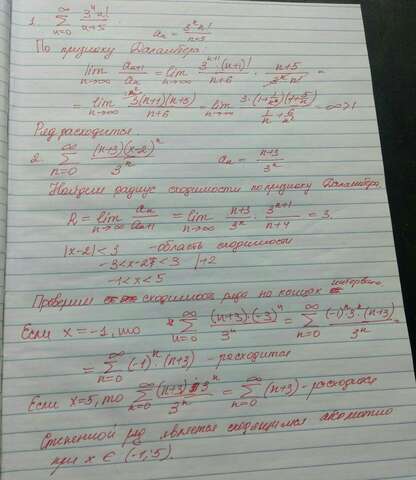 1. ∑_{n=0}^{∞} 3^n n! / n+5 . a_n = 3^n n! / n+5
По признаку Даламбера:
lim_{n→∞} a_{n+1} / a_n = lim_{n→∞} 3^{n+1} (n+1)! / n+6 · n+5 / 3^n n! =
= lim_{n→∞} 3(n+1)(n+5) / n+6 = lim_{n→∞} 3·(1+1/n)(1+5/n) / 1/n + 6/n² = ∞ > 1
Ряд расходится.
2. ∑_{n=0}^{∞} (n+3)(x-2)^n / 3^n a_n = n+3 / 3^n
Найдем радиус сходимости по признаку Даламбера
R = lim_{n→∞} a_n / a_{n+1} = lim_{n→∞} n+3 / 3^n · 3^{n+1} / n+4 = 3,
|x-2| < 3 - область сходимости
-3 < x-2 < 3 |+2
-1 < x < 5
Проверим сходимость ряда на концах интервала
Если x = -1, то ∑_{n=0}^{∞} (n+3)·(-3)^n / 3^n = ∑_{n=0}^{∞} (-1)^n 3^n (n+3) / 3^n =
= ∑_{n=0}^{∞} (-1)^n · (n+3) - расходится
Если x=5, то ∑_{n=0}^{∞} (n+3) 3^n / 3^n = ∑_{n=0}^{∞} (n+3) - расходится
Степенной ряд является сходящимся абсолютно
при x ∈ (-1; 5).